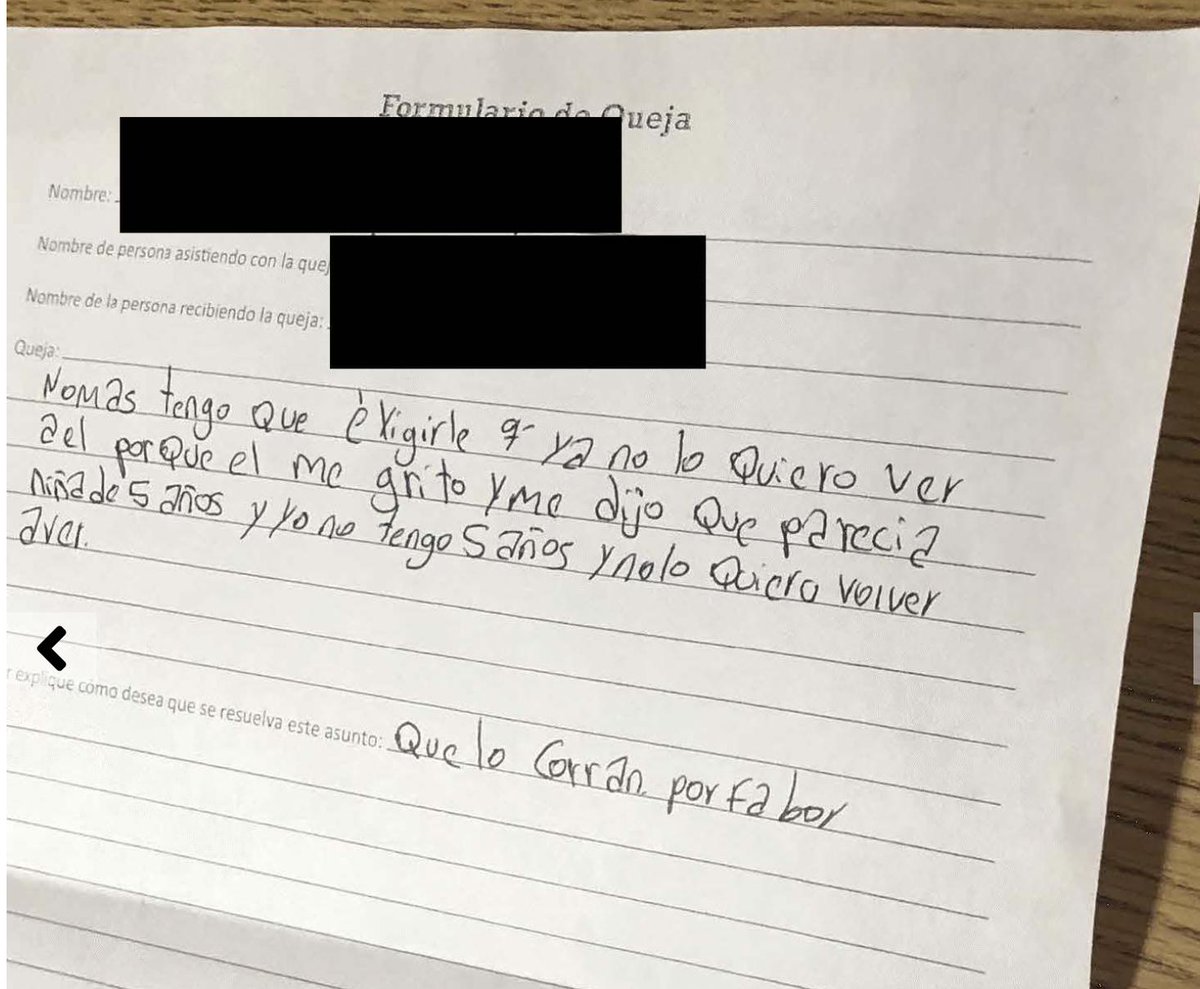 Formulario de Queja
Nombre:
Nombre de persona asistiendo con la quej
Nombre de la persona recibiendo la queja:
Queja:
Nomas tengo que èxigirle q- ya no lo Quiero ver
ael porque el me grito y me dijo Que parecia
niña de 5 años y yo no tengo 5 años y no lo Quiero volver
aver.
r explique cómo desea que se resuelva este asunto: Que lo Corran por fabor